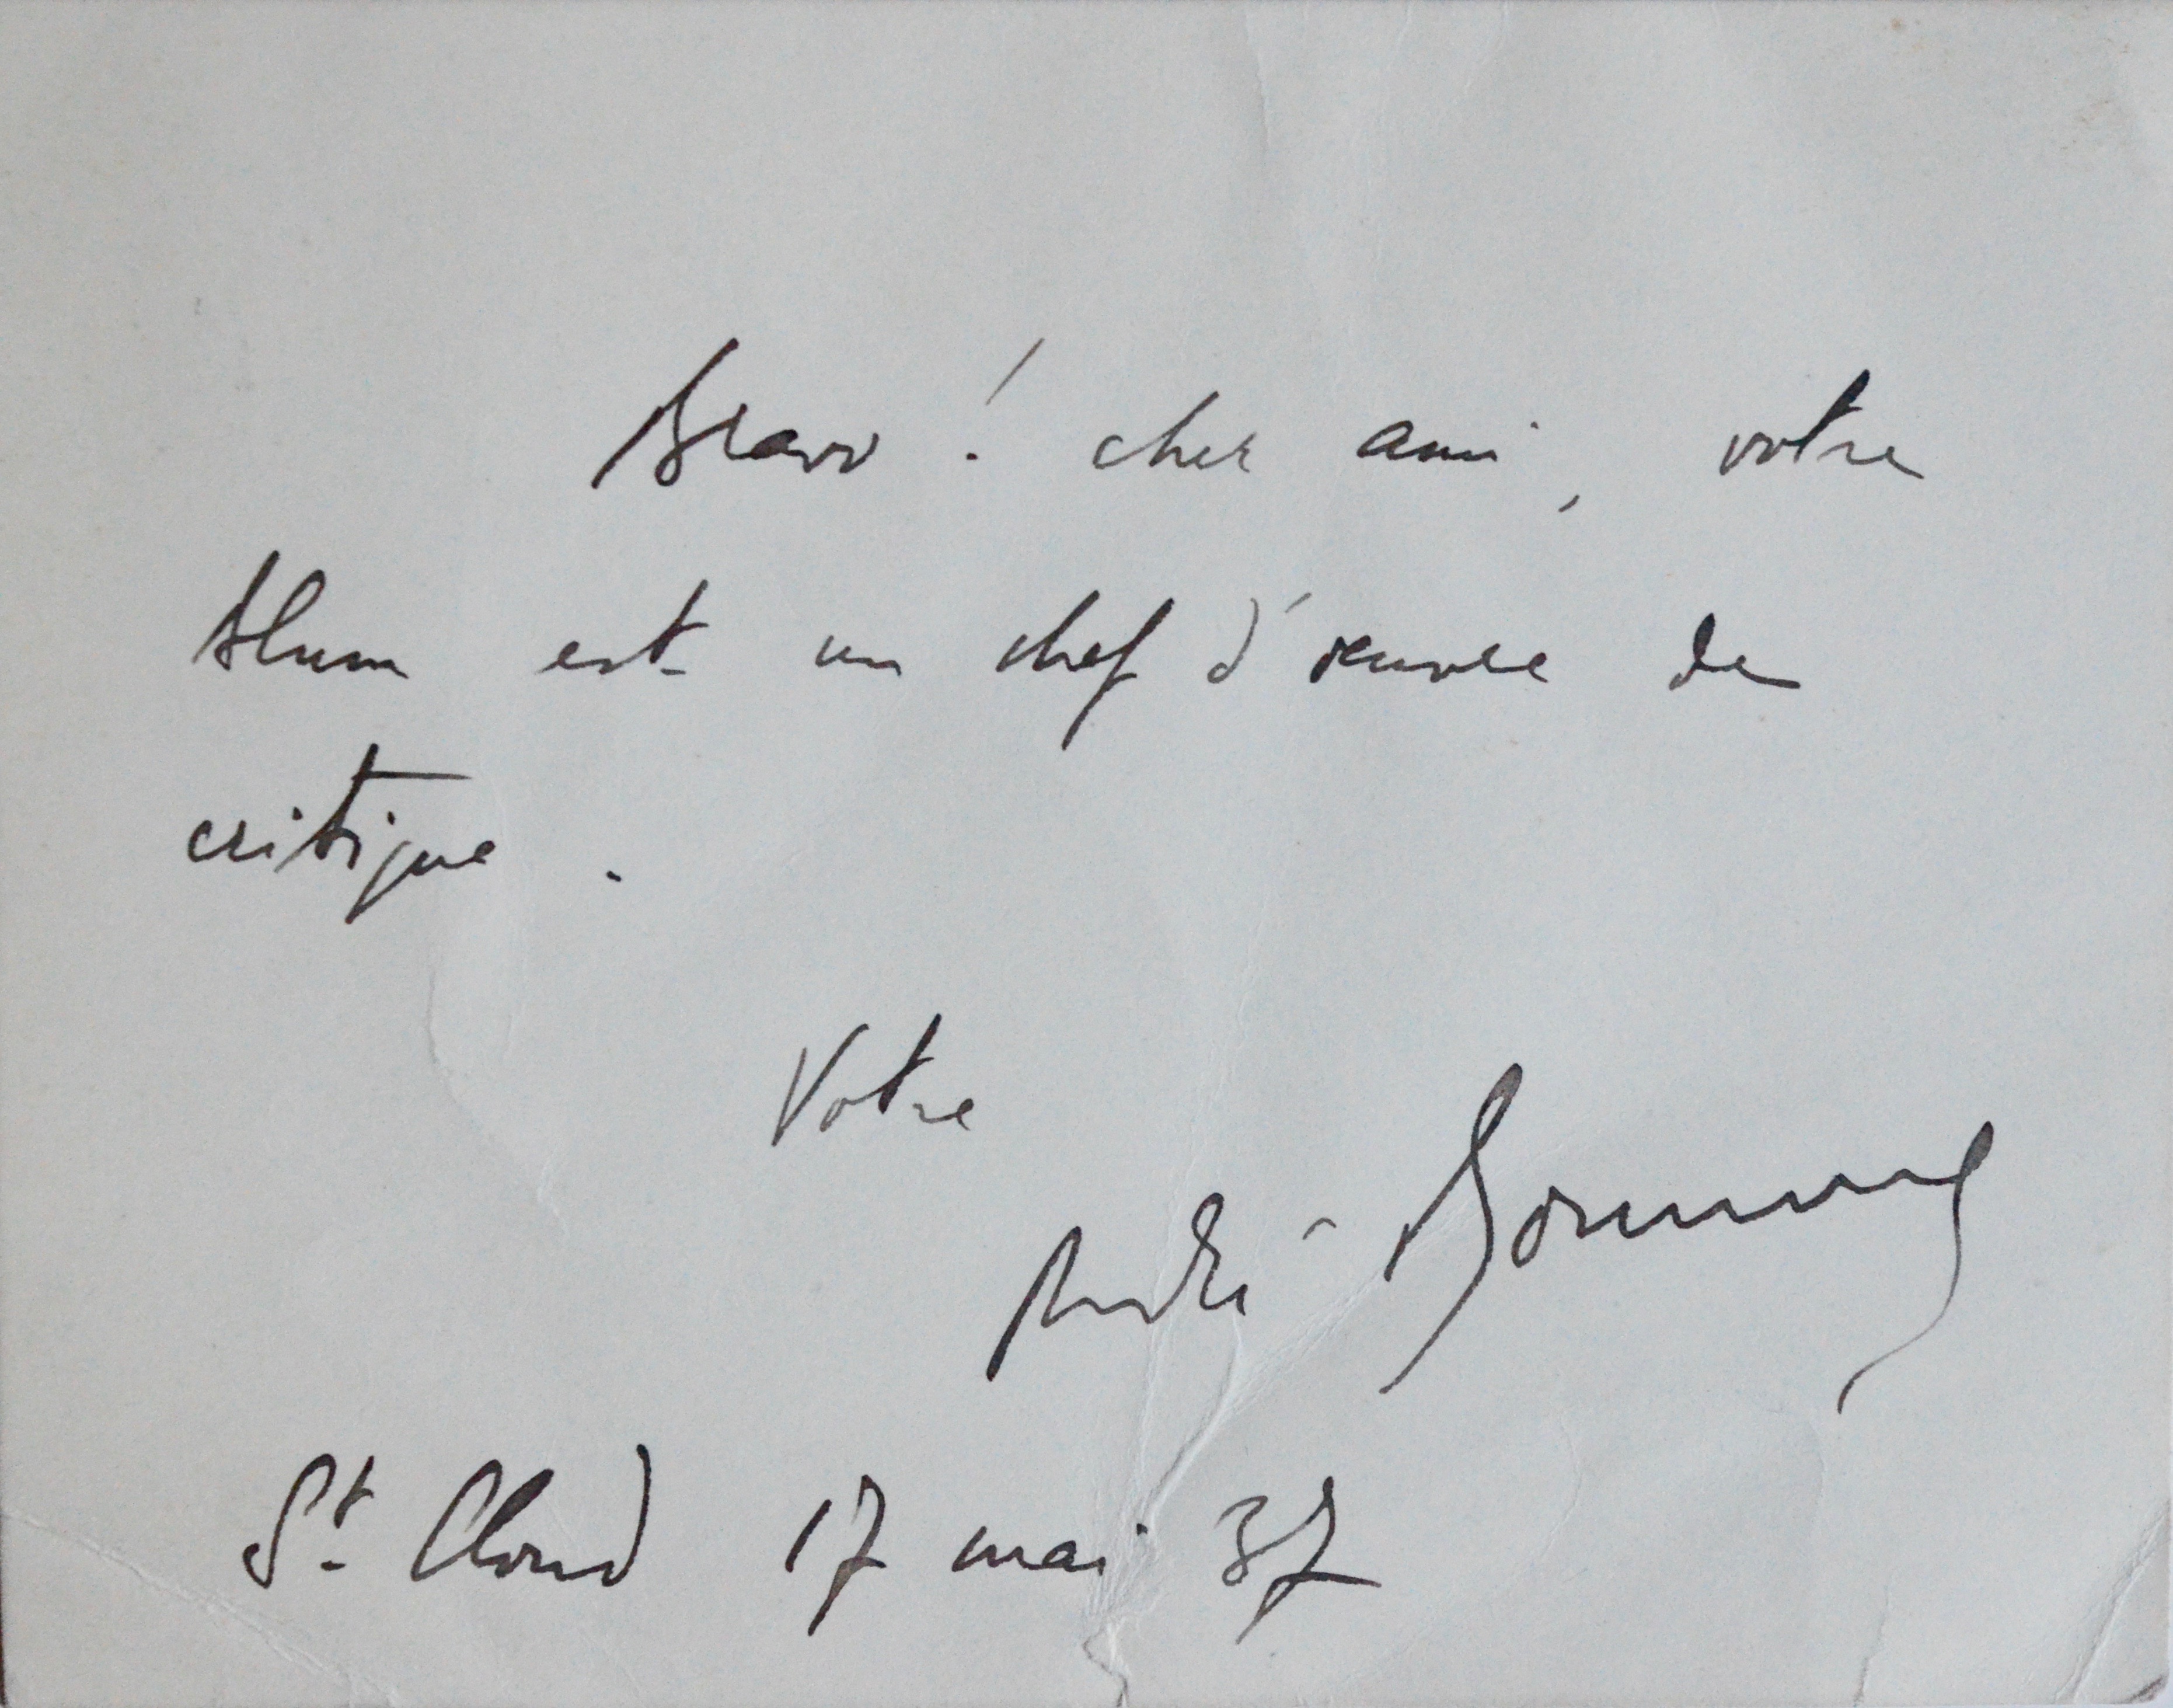 Bravo ! cher ami, votre
Blum est un chef d'œuvre de
critique.
Votre
André
St. Cloud 17 mai 37